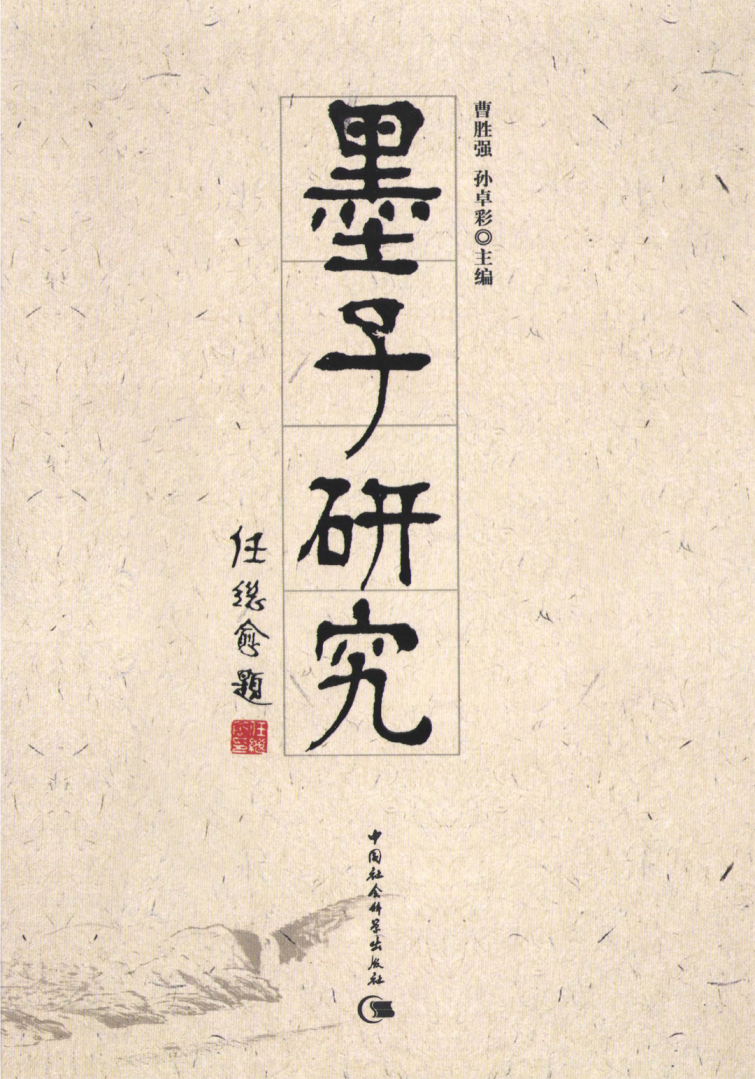 曹胜强 孙卓彩◎主编
墨子研究
任继愈题
中国社会科学出版社